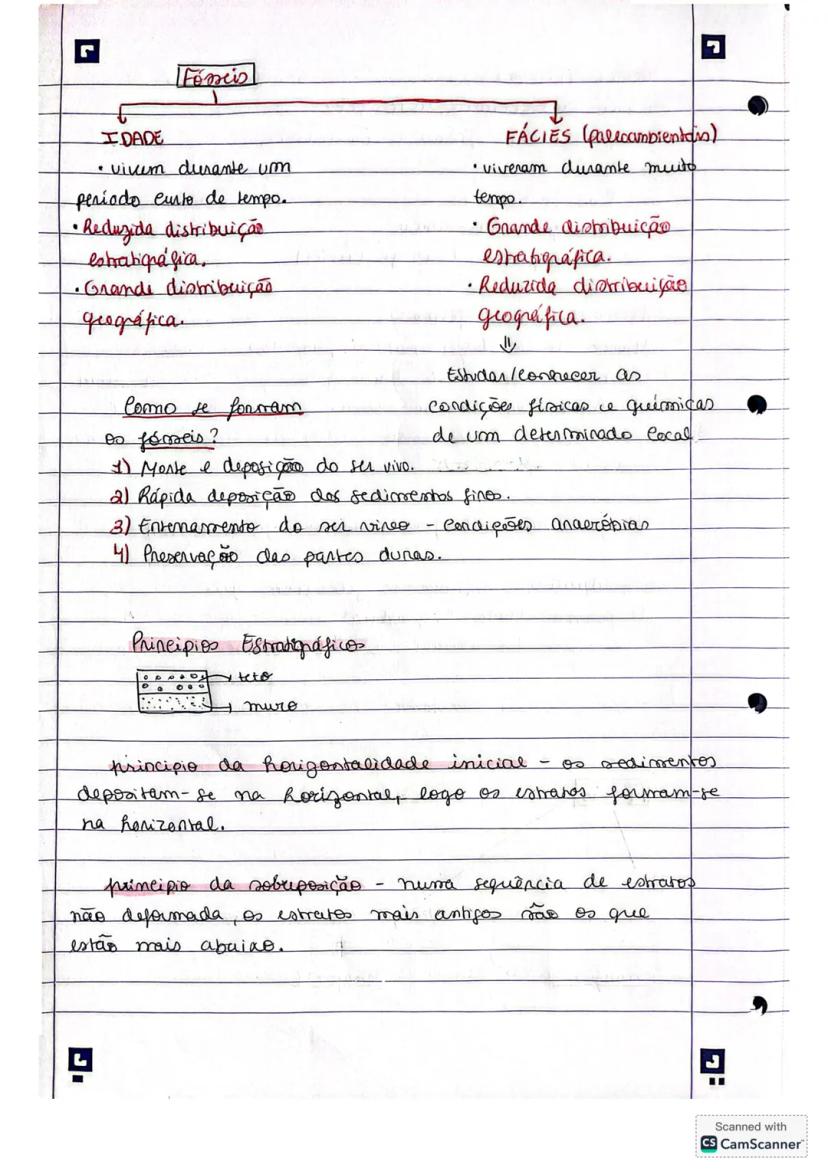 Fósseis
IDADE
• vivem durante um
período curto de tempo.
• Reduzida distribuição
estratigráfica.
• Grande distribuição
geográfica.
FÁCIES (paleoambientais)
• viveram durante muito
tempo.
• Grande distribuição
estratigráfica.
• Reduzida distribuição
geográfica.
⇓
Estudar/conhecer as
condições físicas e químicas
de um determinado local
Como se formam
os fósseis?
1) Morte e deposição do ser vivo.
2) Rápida deposição dos sedimentos finos.
3) Enterramento do ser vivo - condições anaeróbias
4) Preservação das partes duras.
Princípios Estratigráficos
→ teto
→ muro
princípio da horizontalidade inicial - os sedimentos
depositam-se na horizontal, logo os estratos formam-se
na horizontal.
princípio da sobreposição - numa sequência de estratos
não deformada, os estratos mais antigos são os que
estão mais abaixo.
Scanned with
CS CamScanner